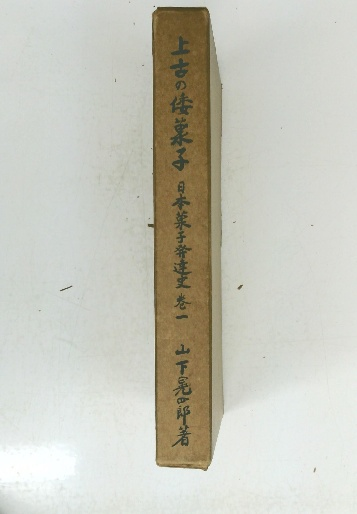 上古の倭菓子 日本菓子発達史 巻一 山下晃四郎著